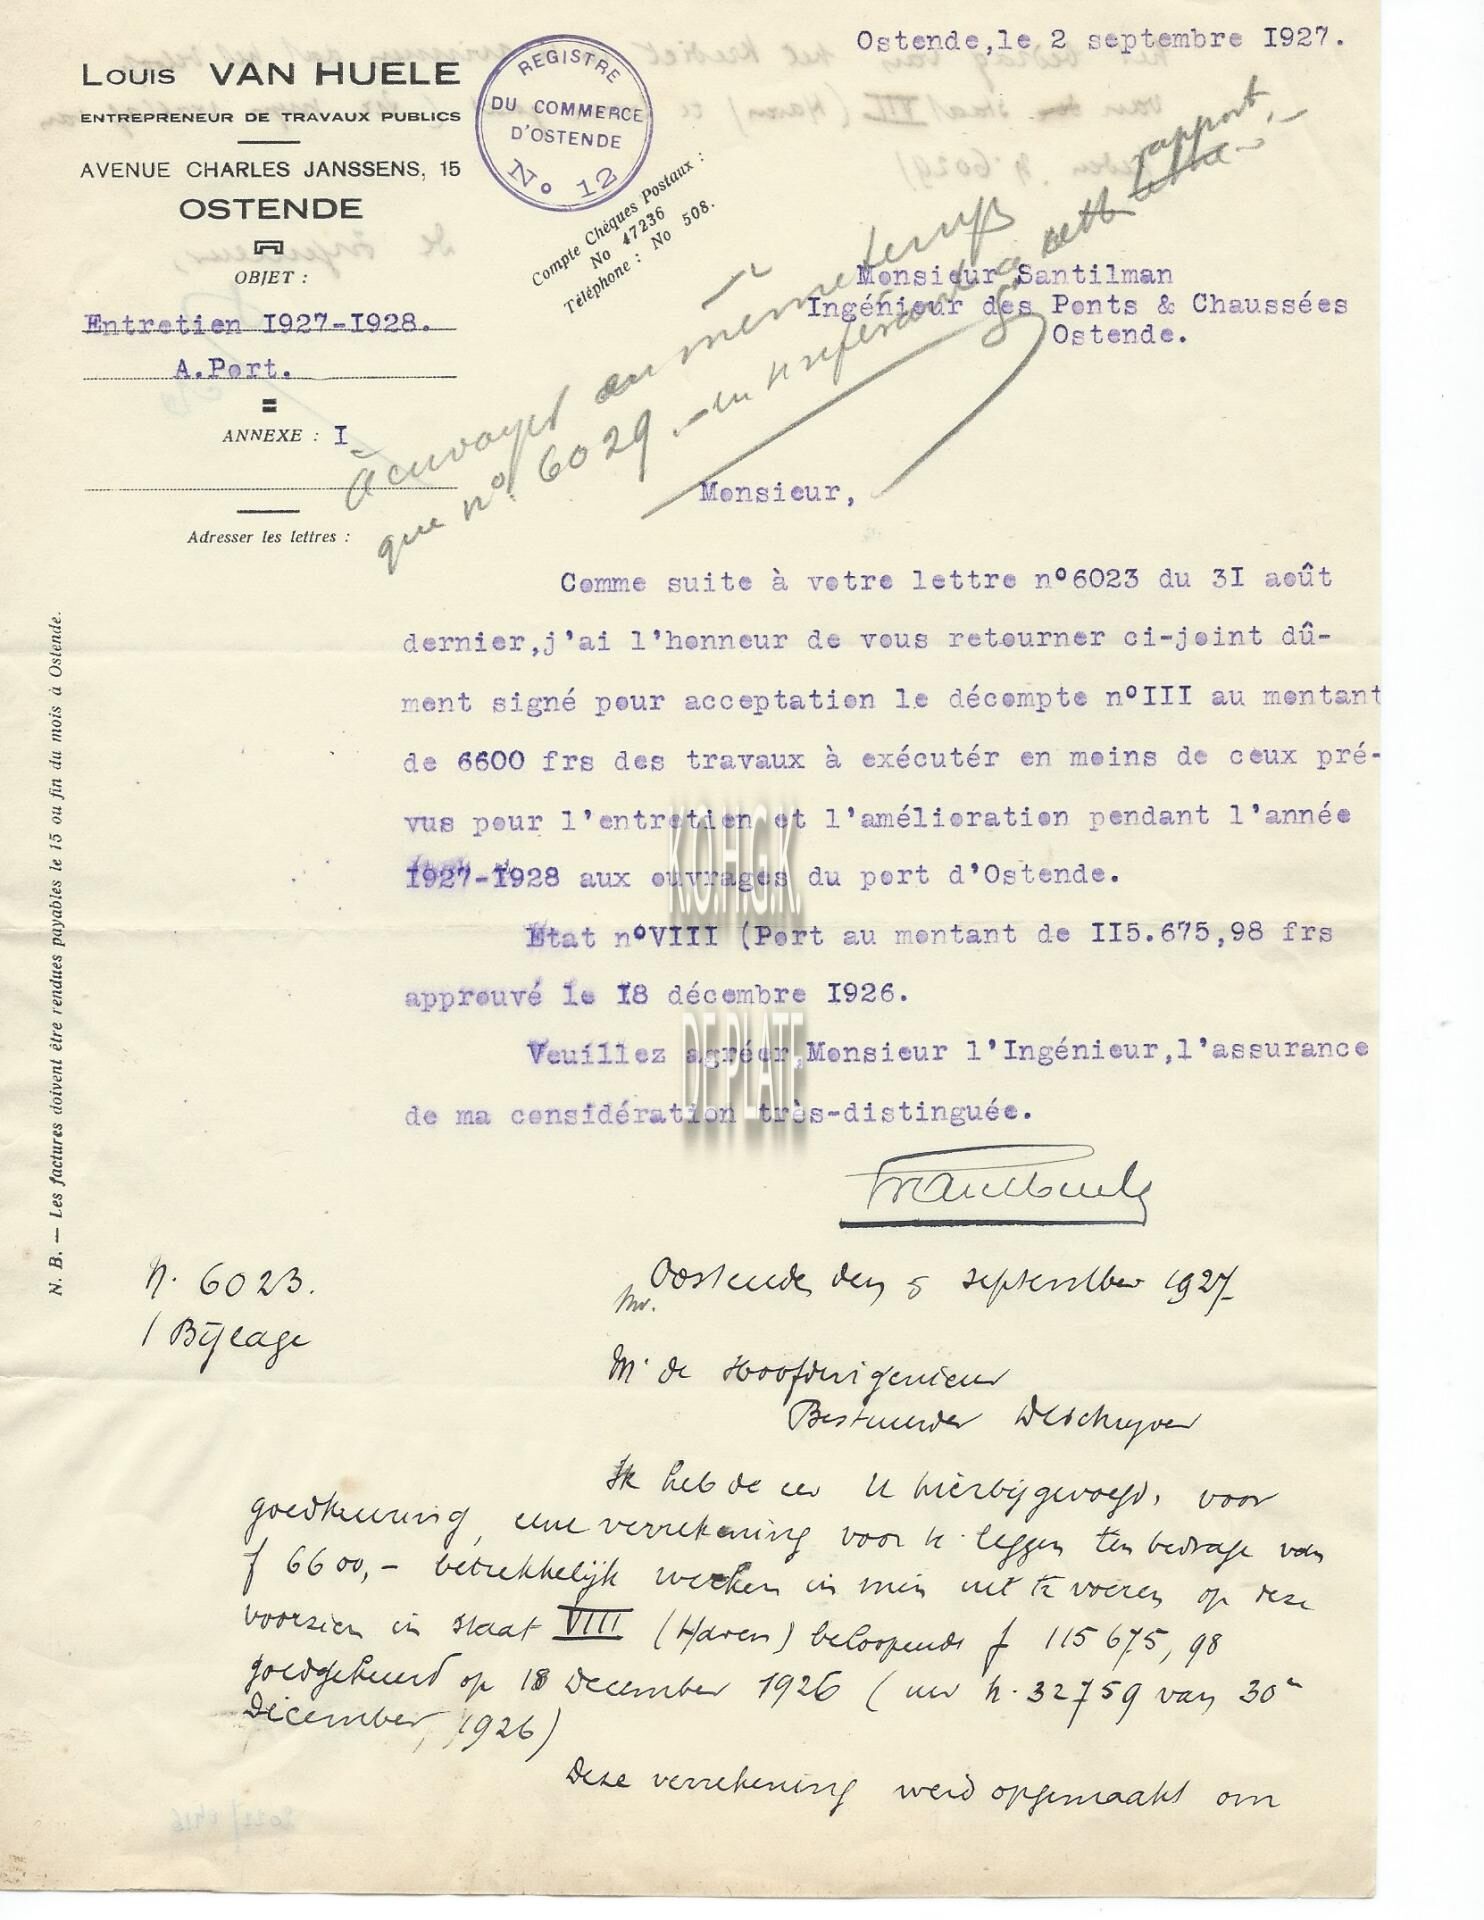 Ostende,le 2 septembre I927.
LOUIS VAN HUELE
ENTREPRENEUR DE TRAVAUX PUBLICS
AVENUE CHARLES JANSSENS, 15
OSTENDE
OBJET :
Entretien I927-I928.
A.Port.
ANNEXE : I
Adresser les lettres :
REGISTRE
DU COMMERCE
D'OSTENDE
No 12
Compte Chèques Postaux :
No 47236
Téléphone : No 508.
Monsieur Santilman
Ingénieur des Ponts & Chaussées
Ostende.
à envoyer en même temps
que n° 6029.- en référant à cette lettre
rapport.
Monsieur,
Comme suite à votre lettre n°6023 du 3I août
dernier,j'ai l'honneur de vous retourner ci-joint dû-
ment signé pour acceptation le décompte n°III au montant
de 6600 frs des travaux à exécutér en moins de ceux pré-
vus pour l'entretien et l'amélioration pendant l'année
I927-I928 aux ouvrages du port d'Ostende.
Etat n°VIII (Port au montant de II5.675,98 frs
approuvé le I8 décembre I926.
Veuillez agréer,Monsieur l'Ingénieur,l'assurance
de ma considération très-distinguée.
K.O.H.G.K.
DE PLATE
N. B. — Les factures doivent être rendues payables le 15 ou fin du mois à Ostende.
N. 6023.
1 Bijlage
Oostende den 5 september 1927
Mr. de Hoofdingenieur
Bestuurder Deschryver
Ik heb de eer U hierbijgevoegd, voor
goedkeuring, eene verrekening voor te leggen ten bedrage van
f 6600,- betrekkelijk werken in min uit te voeren op deze
voorzien in staat VIII (Haven) beloopende f 115675,98
goedgekeurd op 18 December 1926 (uw N. 32759 van 30n
December, 1926)
Deze verrekening werd opgemaakt om